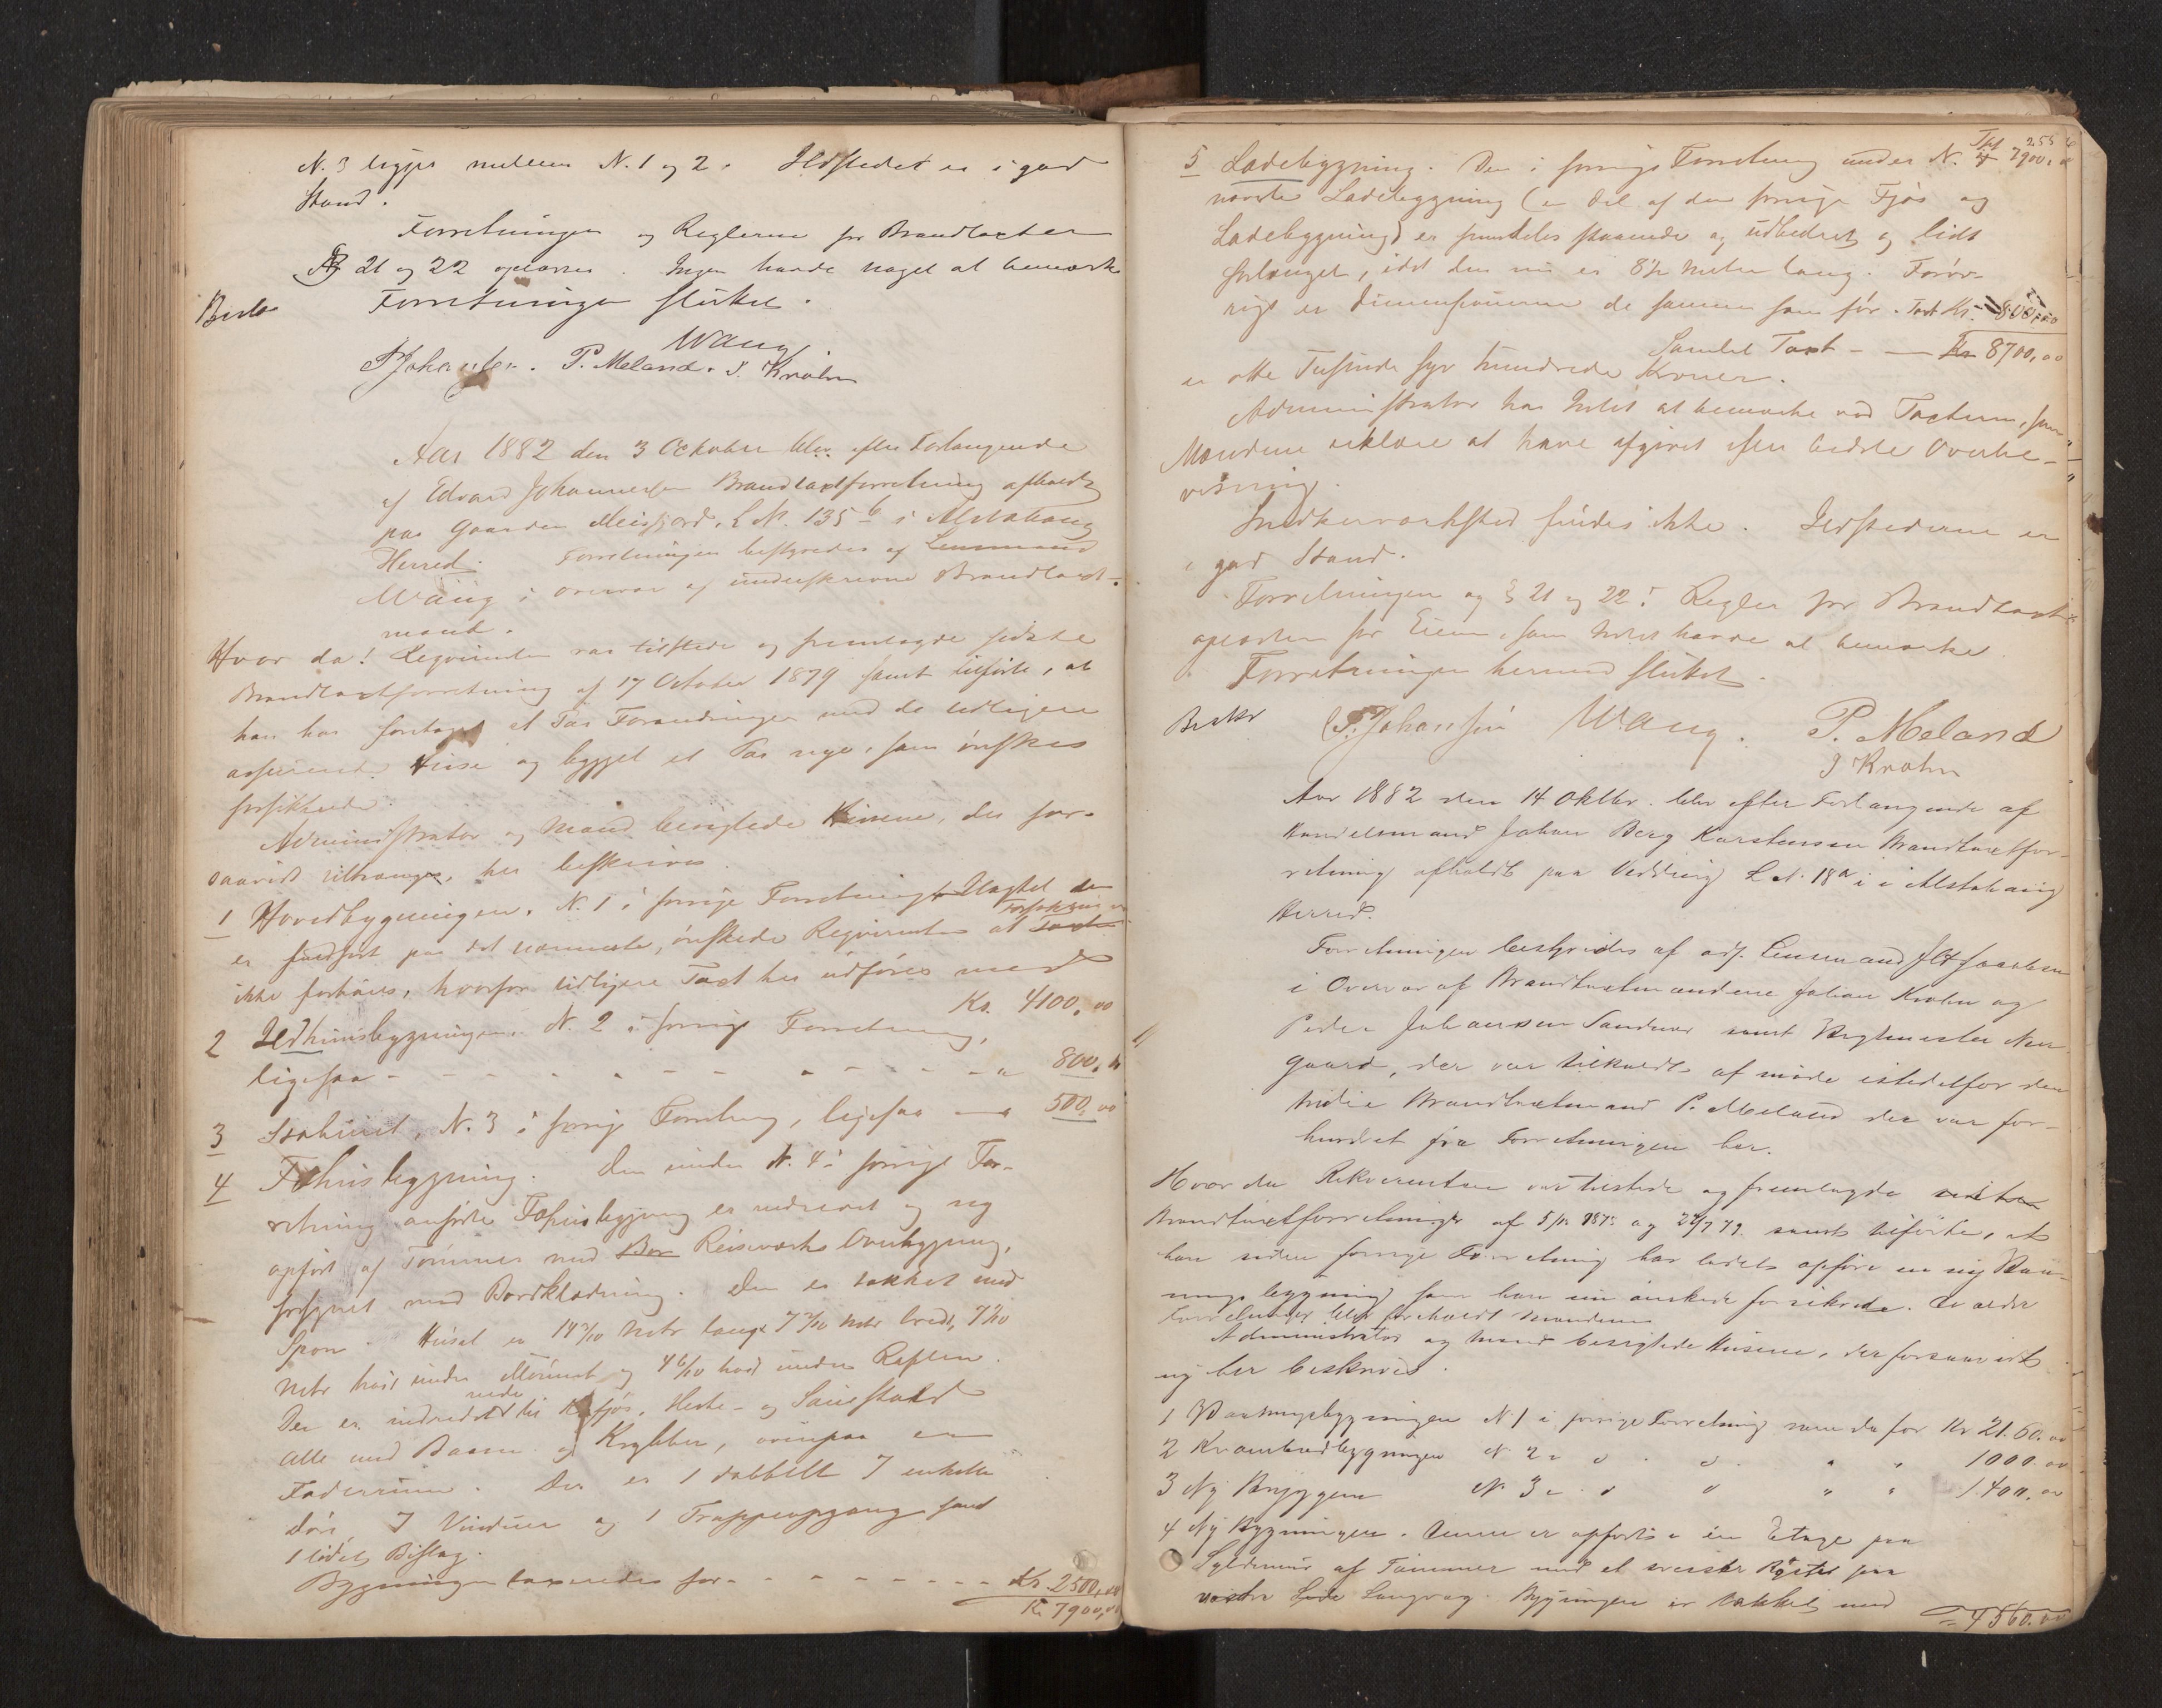 N. 3 ligger mellem N. 1 og 2. Ildstedet er i god
Stand.
Forretningen og Reglerne for Brandtaxter
§§ 21 og 22 oplæstes. Ingen havde noget at bemærke
Forretningen sluttet.
Wang
P. Johansen. P. Meland. J. Krohn
Aar 1882 den 3 October blev efter Forlangende
af Edvard Johannessen Brandtaxtforretning afholdt
paa Gaarden Meisfjord, L.N. 135 b i Alstahaug
Herred. Forretningen bestyredes af Lensmand
Wang i overvær af underskrevne Brandtaxt-
mænd.
Hvor da! Reqvirenten var tilstede og fremlagde sidste
Brandtaxtforretning af 17 October 1879 samt tilførte, at
han har foretaget et Par Forandringer med de tidligere
assurerede Huse og bygget et Par nye, som ønskes
forsikrede.
Administrator og Mænd besigtede Husene, der for-
saavidt tiltrænges, her beskrives.
1 Hovedbygningen. N. 1 i forrige Forretning. Uagtet den
Forsikring
er istandsat paa det nærmeste, ønskede Reqvirenten at Taxten
ikke forhøies, hvorfor tidligere Taxt her udføres med
Kr. 4100,00
2 Ildhuusbygningen. N. 2 i forrige Forretning,
ligesaa - - - - - - - - - - - " 800, "
3 Staburet, N. 3 i forrige Forretning, ligesaa — " 500,00
4 Fæhusbygning. Den under N. 4 i forrige For-
retning anførte Fæhusbygning er nedrevet og ny
opført af Tømmer med Bor Reisverks Overbygning,
forsynet med Bordklædning. Den er tækket med
Spon. Huset er 14 3/10 Metr langt 7 3/10 Metr bredt,
Metr høit under Mønnet og 4 6/10 høit under Raften.
nede
Der er indredet til Kofjøs, Heste- og Sauestald
alle med Baase og Krybber, ovenpaa en
Foderrum. Der er 1 dobbelt 7 enkelte
Døre, 7 Vinduer og 1 Trappeopgang samt
1 lidet Bislag.
Bygningen taxeredes for - - - - - - - - Kr 2500,00
Kr. 7900,00
255
5 Ladebygning. Den i forrige Forretning under N. 4 7900,
nævnte Ladebygning (en Del af den forrige Fjøs og
Ladebygning) er fremdeles staaende og udbedret og lidt
forlænget, idet den nu er 8 1/2 Meter lang. Forøv-
rigt er Dimensionerne de samme som før. Taxt Kr. 800,00
Samlet Taxt - — Kr 8700,00
er otte Tusinde syv hundrede Kroner.
Administrator har Intet at bemærke ved Taxterne, som
Mændene erklære at have afgivet efter bedste Overbe-
visning.
Snedkerværksted findes ikke. Ildstederne er
i god Stand.
Forretningen og § 21 og 22 i Regler for Brandtaxt
oplæstes for Eieren, som Intet havde at bemærke
Forretningen hermed sluttet.
P. Johansen Wang. P. Meland
J Krohn
Aar 1882 den 14 Oktbr. blev efter Forlangende af
Handelsmand Johan Berg Karstensen Brandtaxtfor-
retning afholdt paa Vedding L.N. 18a i i Alstahaug
Herred.
Forretningen bestyredes af adj. Lensmand
i Overvær af Brandtaxtmændene Johan Krohn og
Peder Johansen Sandnes samt Bygmester
gaard, der var tilkaldt af møde istedetfor den
tredie Brandtaxtmand P. Meland der var for-
hindret fra Forretningen her.
Hvor da Rekvirenten var tilstede og fremlagde
Brandtaxtforretninger af samt tilførte, at
han siden forrige Forretning har ladet opføre en ny Vaa-
nings bygning som han nu ønskede forsikrede. De ældre
Forretninger blev foreholdt Mændene
Administrator og Mænd besigtede Husene, der forsaavidt
ny her beskrives.
1 Vaaningsbygningen N 1 i forrige Forretning som da for Kr 21.60.00
2 Krambodbygningen N 2 " " . " " " 1000.00
3 Ny Bryggen N 3 " " " " " 1.400.00
4 Ny Bygningen. Denne er opført i én Etage paa
Syldmuur af Tømmer med et paa
vestre Side Langvæg. Bygningen er tækket med
= 4560.00